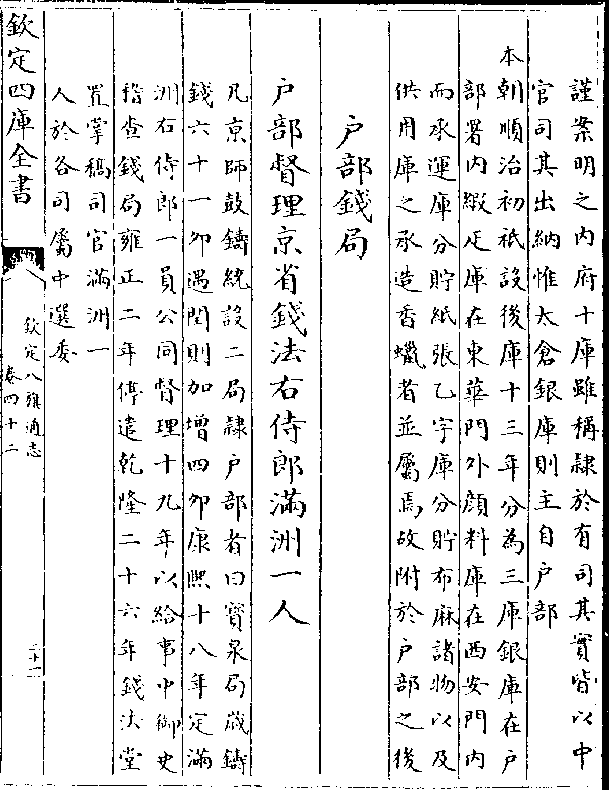 謹案明之内府十庫雖稱隷於有司其實皆以中
官司其出納惟太倉銀庫則主自户部
本朝順治初祇設後庫十三年分為三庫銀庫在户
部署内緞疋庫在東華門外顔料庫在西安門内
而承運庫分貯紙張乙字庫分貯布麻諸物以及
供用庫之承造香蠟者並屬焉故附於户部之後
户部錢局
户部督理京省錢法右侍郎滿洲一人
凡京師鼓鑄統設二局隷户部者曰寳泉局嵗鑄
錢六十一卯遇閏則加增四卯康熙十八年定滿
洲右侍郎一員公同督理十九年以給事中御史
稽查錢局雍正二年停遣乾隆二十六年錢法堂
置掌稿司官滿洲一
人於各司屬中選委
欽定四庫全書
欽定八旗通志
卷四十二